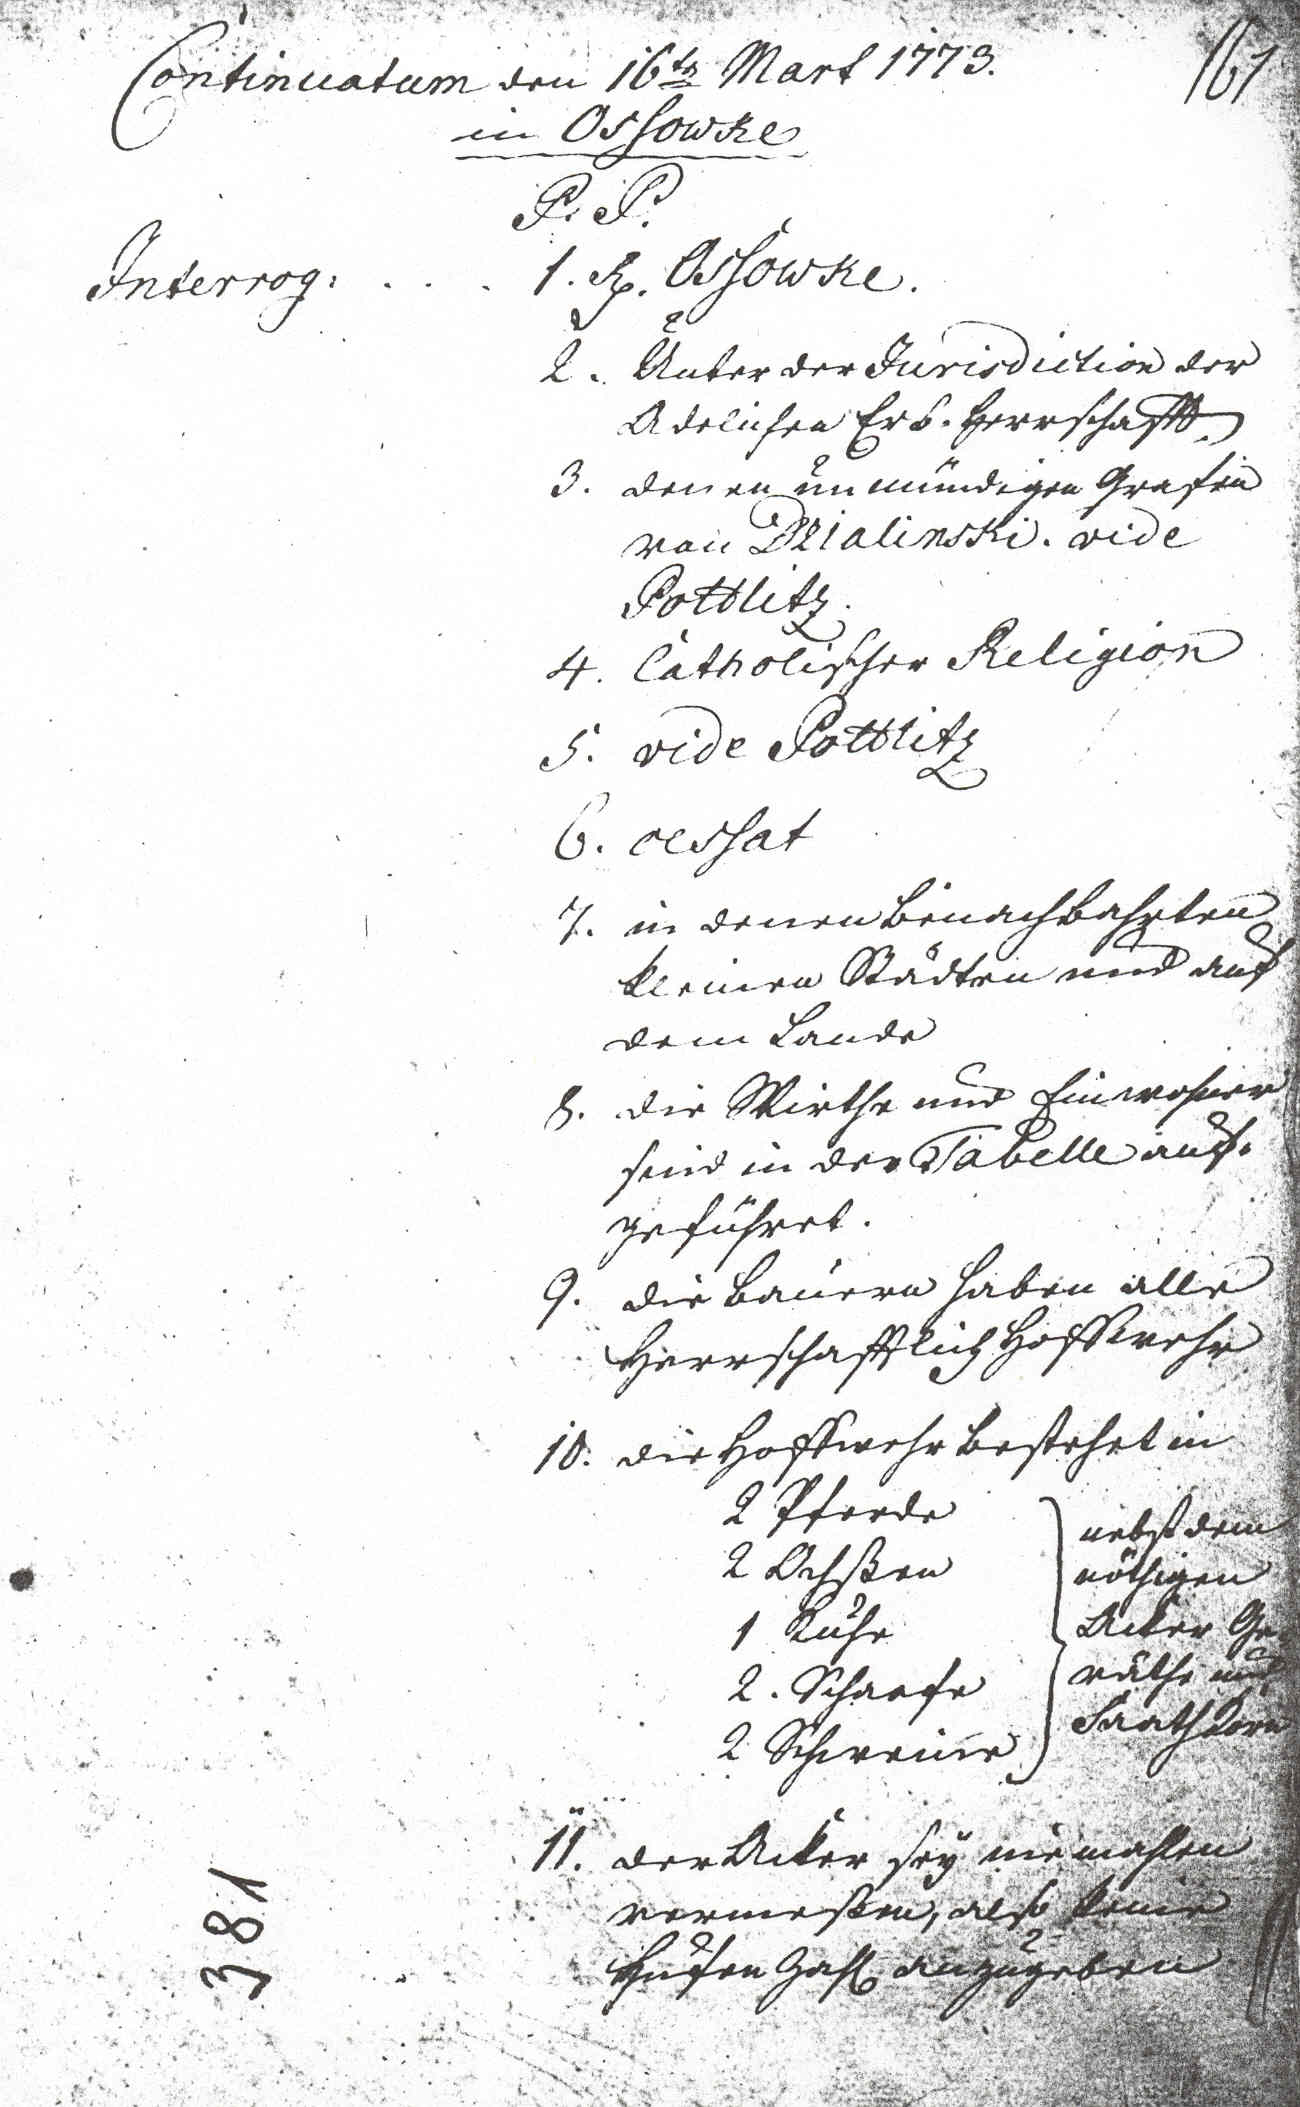 161
Continuatum den 16ten Mart 1773.
in Ossowke
P. P.
Interrog: . . . 1. Rp. Ossowke.
2. Unter der Jurisdiction der
Adelichen Erb-Herrschafft
3. denen unmündigen Grafen
von Dzialinski. vide
Pottlitz.
4. Catholischer Religion
5. vide Pottlitz
6. cessat
7. in denen benachbahrten
kleinen Städten und auf
dem Lande
8. die Wirthe und Einwohner
sind in der Tabelle auf-
geführet.
9. die Bauern haben alle
Herrschafftlich Hoffwehr
10. die Hoffwehr bestehet in
2 Pferde
2 Ochßen
1 Kuhe
2. Schaefe
2 Schweine
nebst dem
nöthigen
Acker Ge-
räthe und
Saath Korn
11. der Acker seÿ niemahlen
vermeßen, also keine
Hufen Zahl anzugeben
381